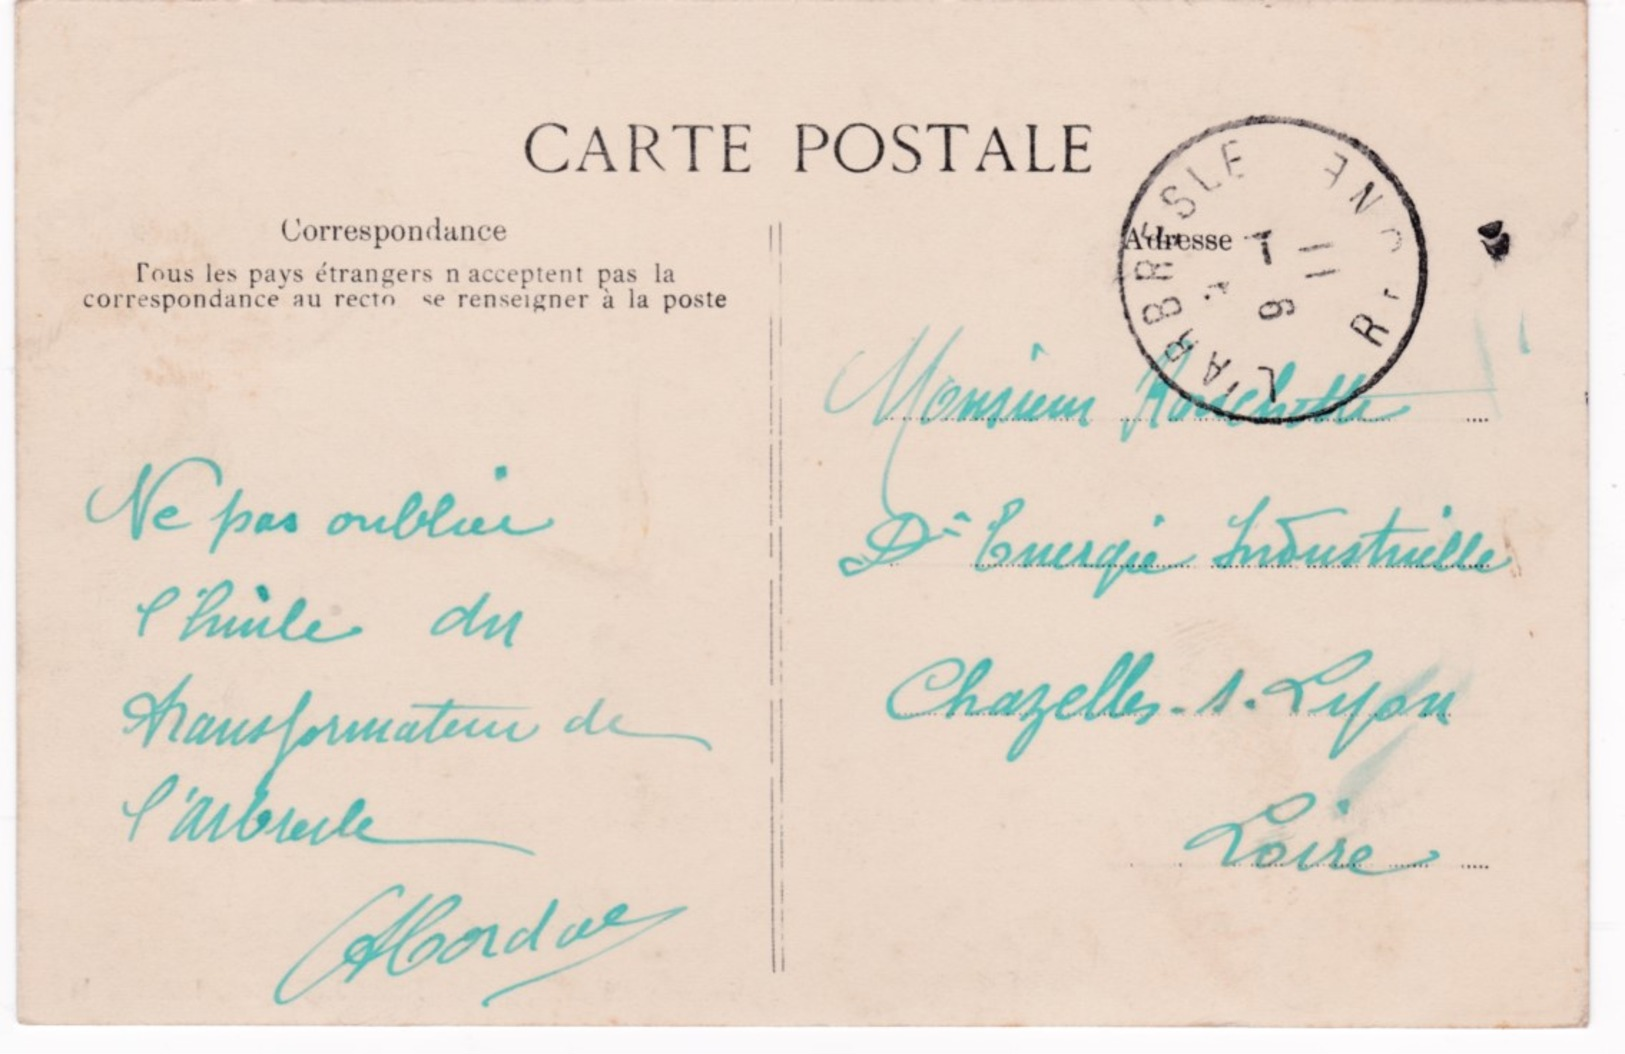 CARTE POSTALE
Correspondance
Tous les pays étrangers n acceptent pas la
correspondance au recto se renseigner à la poste
Ne pas oublier
l'huile du
transformateur de
l'arbresle
Adresse
L'ARBRESLE RHONE
1 - 6
11
Monsieur
Dr Energie Industrielle
Chazelles-s-Lyon
Loire